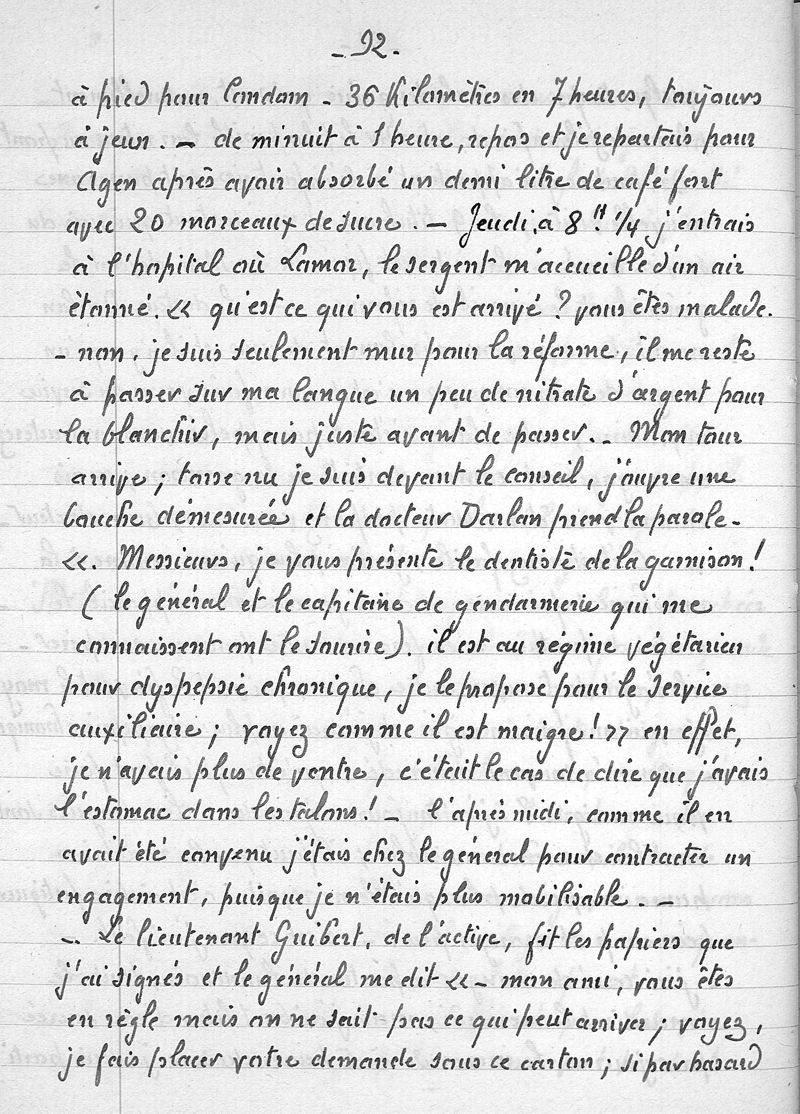 - 92 -
à pied pour Condom - 36 Kilomètres en 7 heures, toujours
à jeun. - de minuit à 1 heure, repos et je repartais pour
Agen après avoir absorbé un demi litre de café fort
avec 20 morceaux de sucre. - Jeudi, à 8 H. 1/4 j'entrais
à l'hopital où Lamor, le sergent m'accueille d'un air
étonné. « qu'est ce qui vous est arrivé ? vous êtes malade.
- non, je suis seulement mur pour la réforme, il me reste
à passer sur ma langue un peu de nitrate d'argent pour
la blanchir, mais juste avant de passer. - Mon tour
arrive ; torse nu je suis devant le conseil, j'ouvre une
bouche démesurée et la docteur Darlan prend la parole -
«. Messieurs, je vous présente le dentiste de la garnison !
( le général et le capitaine de gendarmerie qui me
connaissent ont le sourire ). il est au régime végétarien
pour dyspepsie chronique, je le propose pour le service
auxiliaire ; voyez comme il est maigre ! » en effet,
je n'avais plus de ventre, c'était le cas de dire que j'avais
l'estomac dans les talons ! - l'après midi, comme il en
avait été convenu j'étais chez le général pour contracter un
engagement, puisque je n'étais plus mobilisable. -
-. Le lieutenant Guibert, de l'active, fit les papiers que
j'ai signés et le général me dit « - mon ami, vous êtes
en règle mais on ne sait pas ce qui peut arriver ; voyez,
je fais placer votre demande sous ce carton ; si par hasard